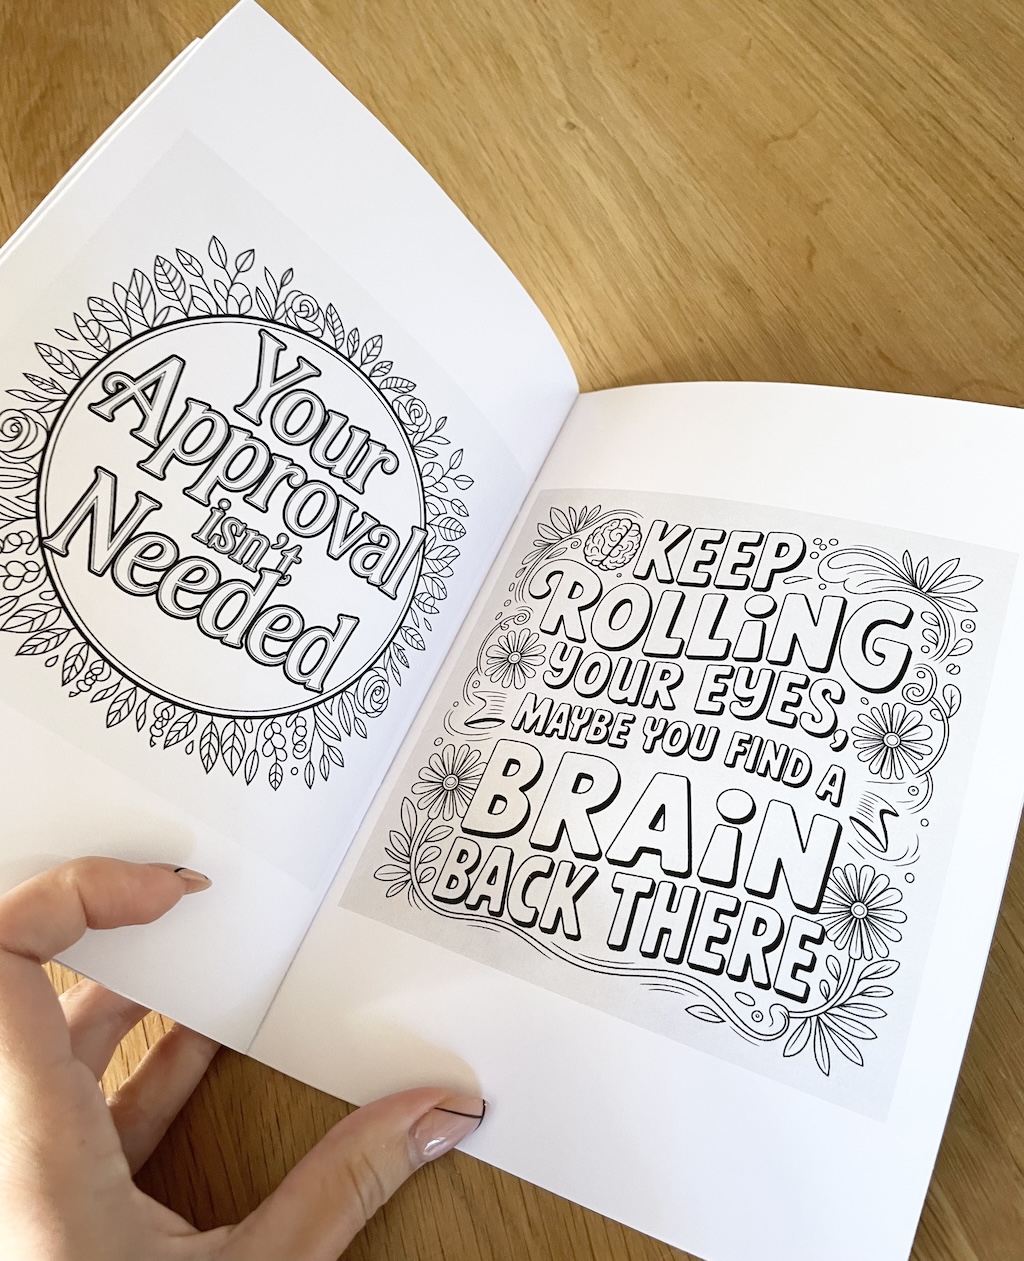 Your
Approval
isn't
Needed
KEEP
ROLLiNG
YOUR EYES,
MAYBE YOU FIND A
BRAiN
BACK THERE